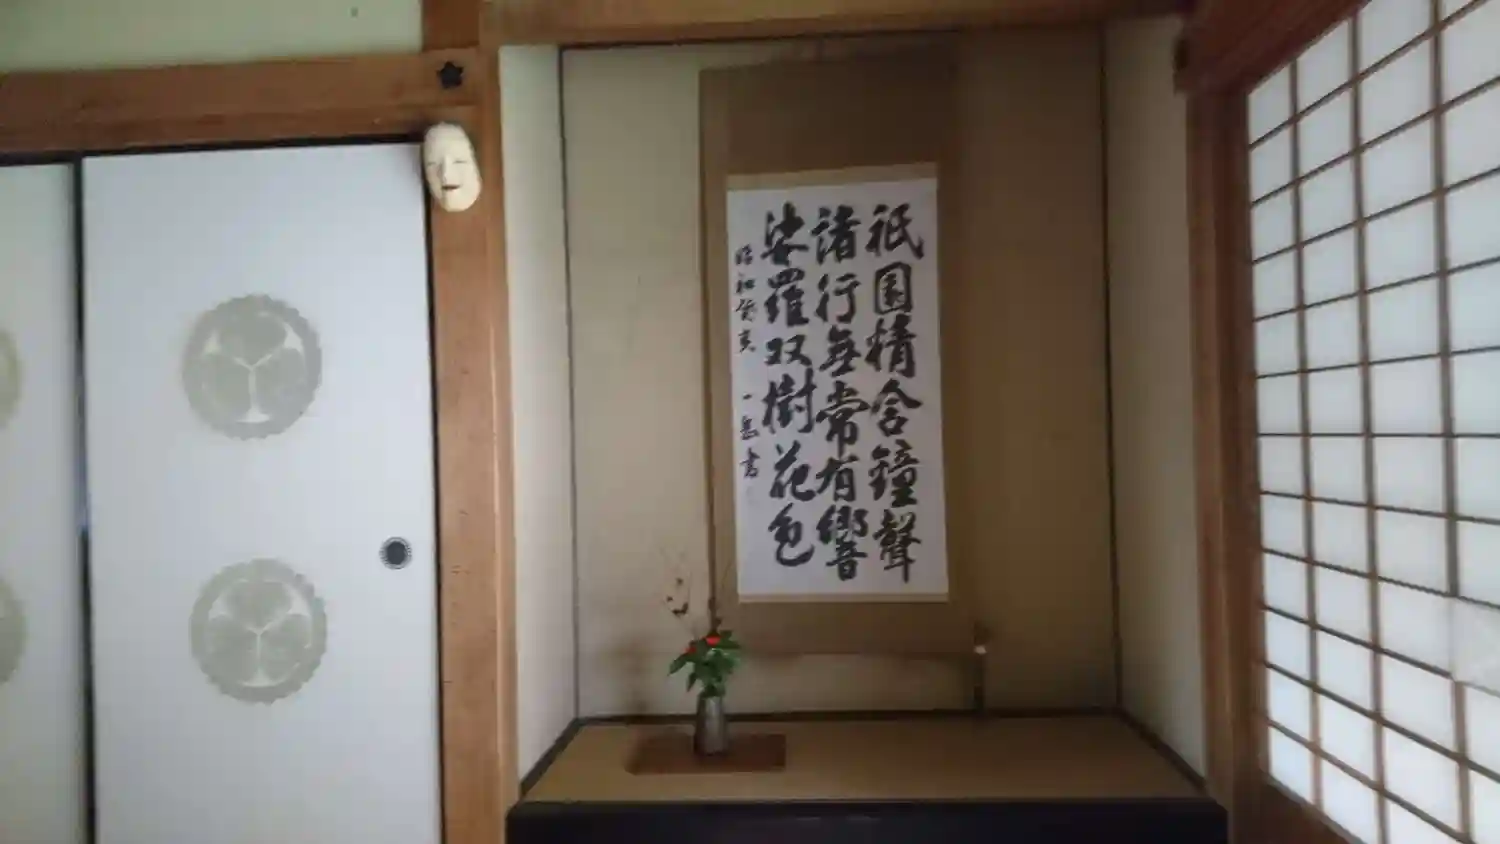 祇園精舎鐘聲
諸行無常有響
娑羅双樹花色
昭和癸亥 一 書